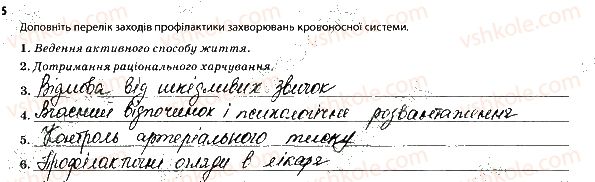 5
Доповніть перелік заходів профілактики захворювань кровоносної системи.
1. Ведення активного способу життя.
2. Дотримання раціонального харчування.
3. Відмова від шкідливих звичок
4. Вчасний відпочинок і психологічне розвантаження
5. Контроль артеріального тиску
6. Профілактичні огляди в лікаря
vshkole.com